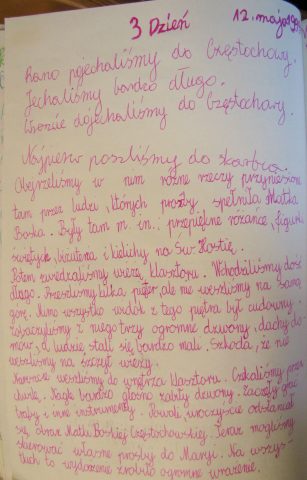 3 Dzień 12. maja
Rano pojechaliśmy do Częstochowy.
Jechaliśmy bardzo długo.
Wreszcie dojechaliśmy do Częstochowy.
Najpierw poszliśmy do skarbca.
Obejrzeliśmy w nim różne rzeczy przyniesione
tam przez ludzi, których prośby spełniła Matka
Boska. Były tam m. in.: przepiękne różańce, figurki
świętych, biżuteria i kielichy, na Św. Hostię.
Potem zwiedzaliśmy wieżę klasztoru. Wchodziliśmy dość
długo. Przeszliśmy kilka pięter, ale nie weszliśmy na samą
górę. Mimo wszystko widok z tego piętra był cudowny.
Zobaczyliśmy z niego trzy ogromne dzwony, dachy do-
mów, a ludzie stali się bardzo mali. Szkoda, że nie
weszliśmy na szczyt wieży.
Nareszcie weszliśmy do wnętrza klasztoru. Czekaliśmy przez
chwilę. Nagle bardzo głośno zabiły dzwony. Zaczęły grać
trąby i inne instrumenty. Powoli, uroczyście odsłaniał
się obraz Matki Boskiej Częstochowskiej. Teraz mogliśmy
skierować własne prośby do Maryi. Na wszys-
tkich to wydarzenie zrobiło ogromne wrażenie.